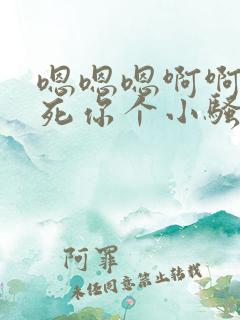 嗯嗯嗯啊啊
死你个小骚
阿罪
未经同意禁止转载